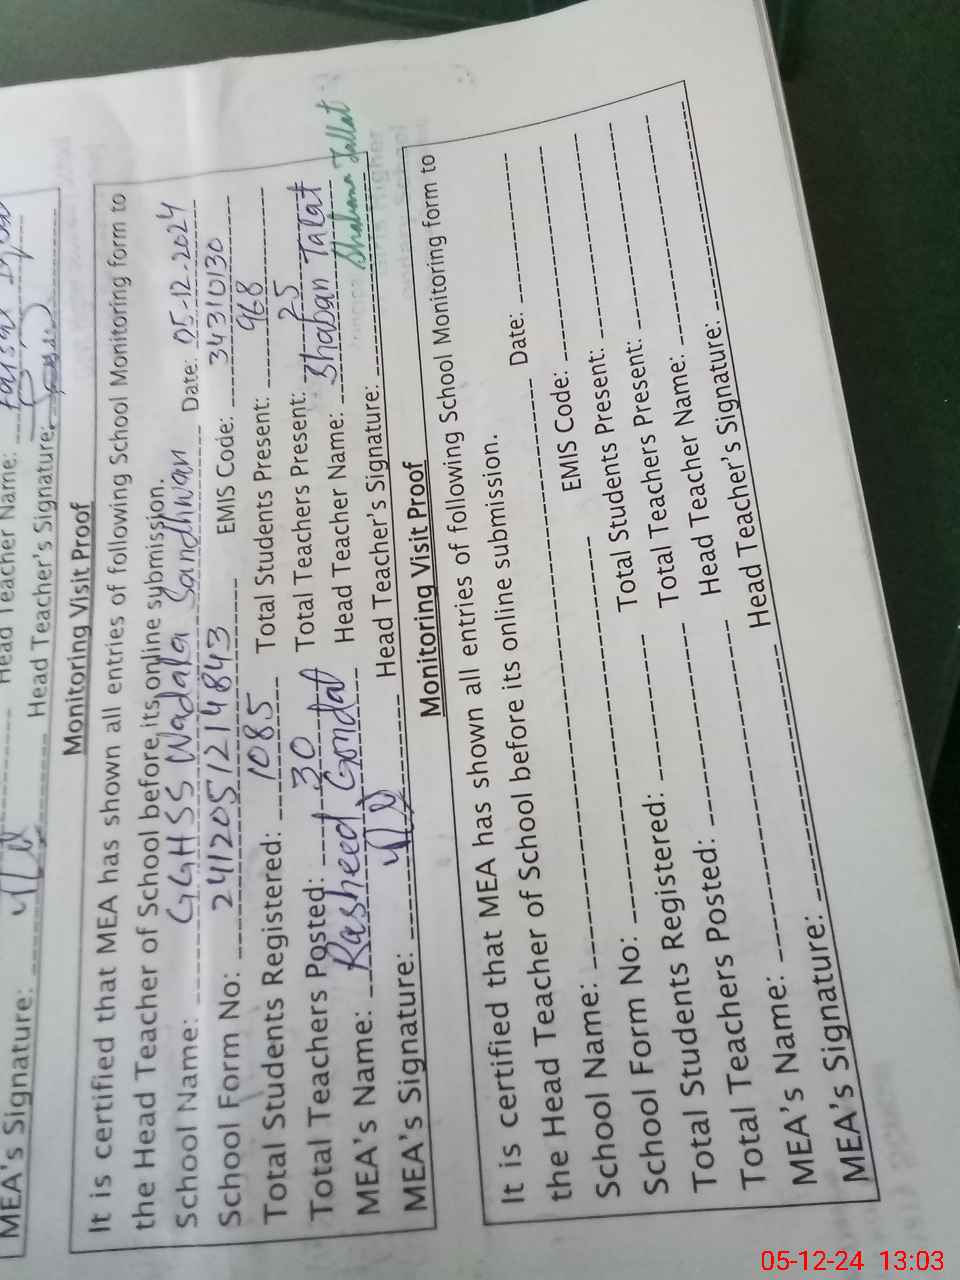 Head Teacher Name:
MEA's Signature: Head Teacher's Signature:
Monitoring Visit Proof
It is certified that MEA has shown all entries of following School Monitoring form to
the Head Teacher of School before its online submission.
School Name: GGHSS Wadala Sandhwan Date: 05-12-2024
School Form No: 24112051214843 EMIS Code: 34310130
Total Students Registered: 1085 Total Students Present: 968
Total Teachers Posted: 30 Total Teachers Present: 25
MEA's Name: Rasheed Gondal Head Teacher Name: Shaban Talat
MEA's Signature: Head Teacher's Signature: Shabana Tallat
Monitoring Visit Proof
It is certified that MEA has shown all entries of following School Monitoring form to
the Head Teacher of School before its online submission.
School Name: Date:
School Form No: EMIS Code:
Total Students Registered: Total Students Present:
Total Teachers Posted: Total Teachers Present:
MEA's Name: Head Teacher Name:
MEA's Signature: Head Teacher's Signature:
05-12-24 13:03